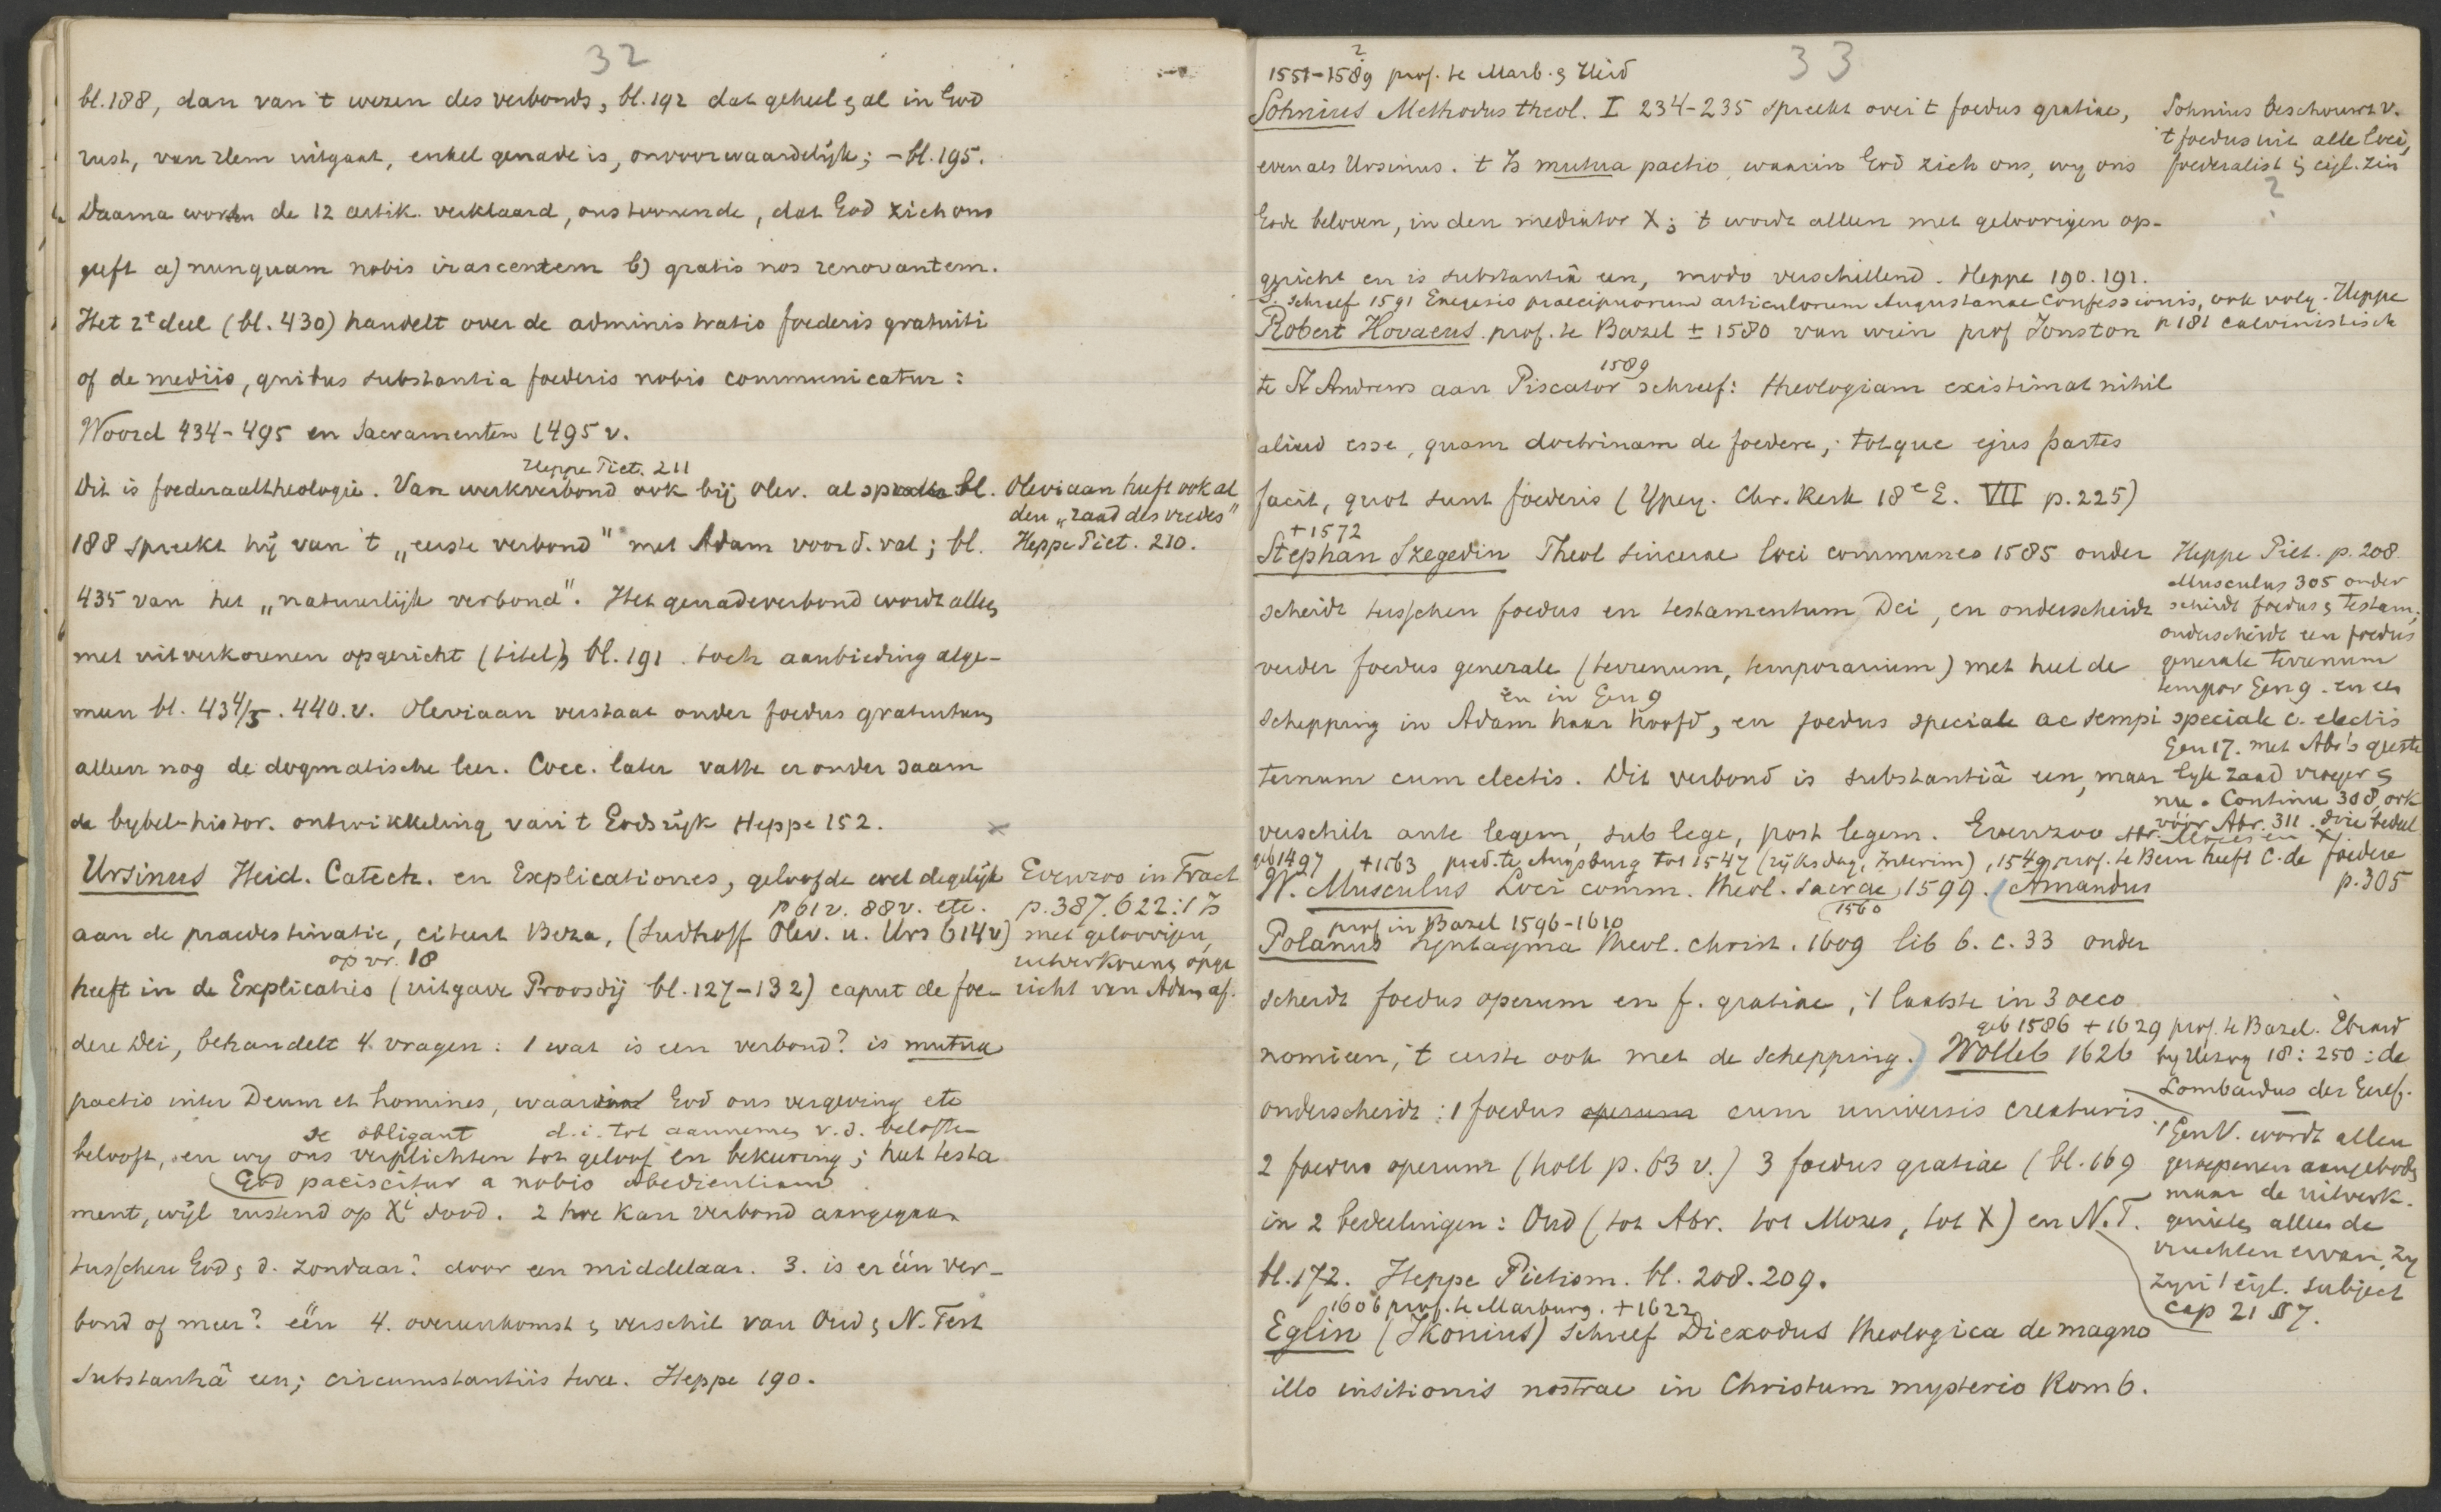 32
bl. 188, dan van 't wezen des verbonds, bl. 192 dat geheel & al in God
rust, van Hem uitgaat, enkel genade is, onvoorwaardelijk; - bl. 195.
Daarna worden de 12 artik. verklaard, ons toonende, dat God zich ons
geeft a) nunquam nobis irascentem b) gratis nos renovantem.
Het 2e deel (bl. 430) handelt over de administratio foederis gratuiti
of de mediis, quibus substantia foederis nobis communicatur:
Woord 434-495 en Sacramenten (495 v.
Heppe Piet. 211
Dit is foederaaltheologie. Van werkverbond ook bij Olev. al sprake bl.
188 spreekt hij van 't „eerste verbond" met Adam voor d. val; bl.
435 van het „natuurlijk verbond". Het genadeverbond wordt alleen
met uitverkorenen opgericht (titel) bl. 191. toch aanbieding alge-
meen bl. 434/5. 440. v. Oleviaan verstaat onder foedus gratuitum
alleen nog de dogmatische leer. Cocc. later vatte er onder saam
de bybel-histor. ontwikkeling van 't Godsrijk Heppe 152.
Oleviaan heeft ook al
den „raad des vredes"
Heppe Piet. 210.
Ursinus Heid. Catech. en Explicationes, geloofde wel degelijk
p 61 v. 88 v. etc.
aan de praedestinatie, citeert Beza, (Sudhoff Olev. u. Urs 614 v)
op vr. 18
heeft in de Explicaties (uitgave Proosdij bl. 127-132) caput de foe-
dere Dei, behandelt 4 vragen: 1 wat is een verbond? is mutua
pactio inter Deum et homines, waarin God ons vergeving etc
se obligant d. i. tot aannemen v. d. belofte
belooft, en wy ons verplichten tot geloof en bekeering; het testa
God paciscitur a nobis obedientiam
ment, wijl rustend op Xi dood. 2 hoe kan verbond aangegaan
tusschen God & d. zondaar? door een middelaar. 3. is er één ver-
bond of meer? één 4. overeenkomst & verschil van Oud & N. Test
substantiâ een; circumstantiis twee. Heppe 190.
Evenzoo in Tract
p. 387. 622: 't Is
met geloovigen,
uitverkorens opge
richt van Adam af.
33
1551-1589 prof. te Marb. & Heid
2
Sohnius Methodus theol. I 234-235 spreekt over 't foedus gratiae,
evenals Ursinus. 't Is mutua pactio, waarin God zich ons, wy ons
Gode beloven, in den mediator X; 't wordt alleen met geloovigen op-
gericht en is substantiâ een, modo verschillend. Heppe 190. 191.
Sohnius beschouwt v.
't foedus uit alle loci,
foederalist in eigl. zin
?
S. schreef 1591 Exegesis praecipuorum articulorum Augustanae Confessionis, ook volg. Heppe
p 181 calvinistisch
Robert Hovaeus prof. te Bazel ± 1580 van wien prof Jonston
1589
te St Andrews aan Piscator schreef: theologiam existimat nihil
aliud esse, quam doctrinam de foedere; totque ejus partes
facit, quot sunt foederis (Ypey. Chr. Kerk 18e E. VII p. 225)
+ 1572
Stephan Szegedin Theol sincerae loci communes 1585 onder
scheidt tusschen foedus en testamentum Dei, en onderscheidt
verder foedus generale (terrenum, temporarium) met heel de
en in Gen 9
schepping in Adam haar hoofd, en foedus speciale ac sempi
ternum cum electis. Dit verbond is substantiâ een, maar
verschilt ante legem, sub lege, post legem. Evenzoo
Heppe Piet. p. 208
Musculus 305 onder
scheidt foedus & Testam;
onderscheidt een foedus
generale terrenum
tempor Gen 9. en een
speciale c. electis
Gen 17. met Abr's geeste
lyk zaad vroeger &
nu. Continu 308, ook
vóór Abr. 311. drie bedeel
geb 1497 + 1563 pred. te Augsburg tot 1547 (rijksdag, Interim), 1549 prof. te Bern heeft C. de foedere
p. 305
W. Musculus Loci comm. theol. sacrae 1599. (Amandus
1560
prof in Bazel 1596-1610
Polanus Syntagma theol. christ. 1609 lib 6. c. 33 onder
scheidt foedus operum en f. gratiae, 't laatste in 3 oeco
nomieen, 't eerste ook met de schepping.) Wolleb 1626
geb 1586 + 1629 prof. te Bazel. Ebrard
by Herzog 18: 250: de
Lombardus der Geref.
onderscheidt: 1 foedus operum cum universis creaturis
2 foedus operum (holl p. 63 v.) 3 foedus gratiae (bl. 169
in 2 bedeelingen: Oud (tot Abr. tot Mozes, tot X) en N. T.
bl. 172. Heppe Pietism. bl. 208. 209.
't GenV. wordt allen
geroepenen aangeboden
maar de uitverk.
genieten alleen de
vruchten ervan, zy
zyn 't eigl. subject
cap 21 § 7.
1606 prof. te Marburg. + 1622
Eglin (Ikonius) schreef Diexodus theologica de magno
illo insitionis nostrae in Christum mysterio Rom 6.